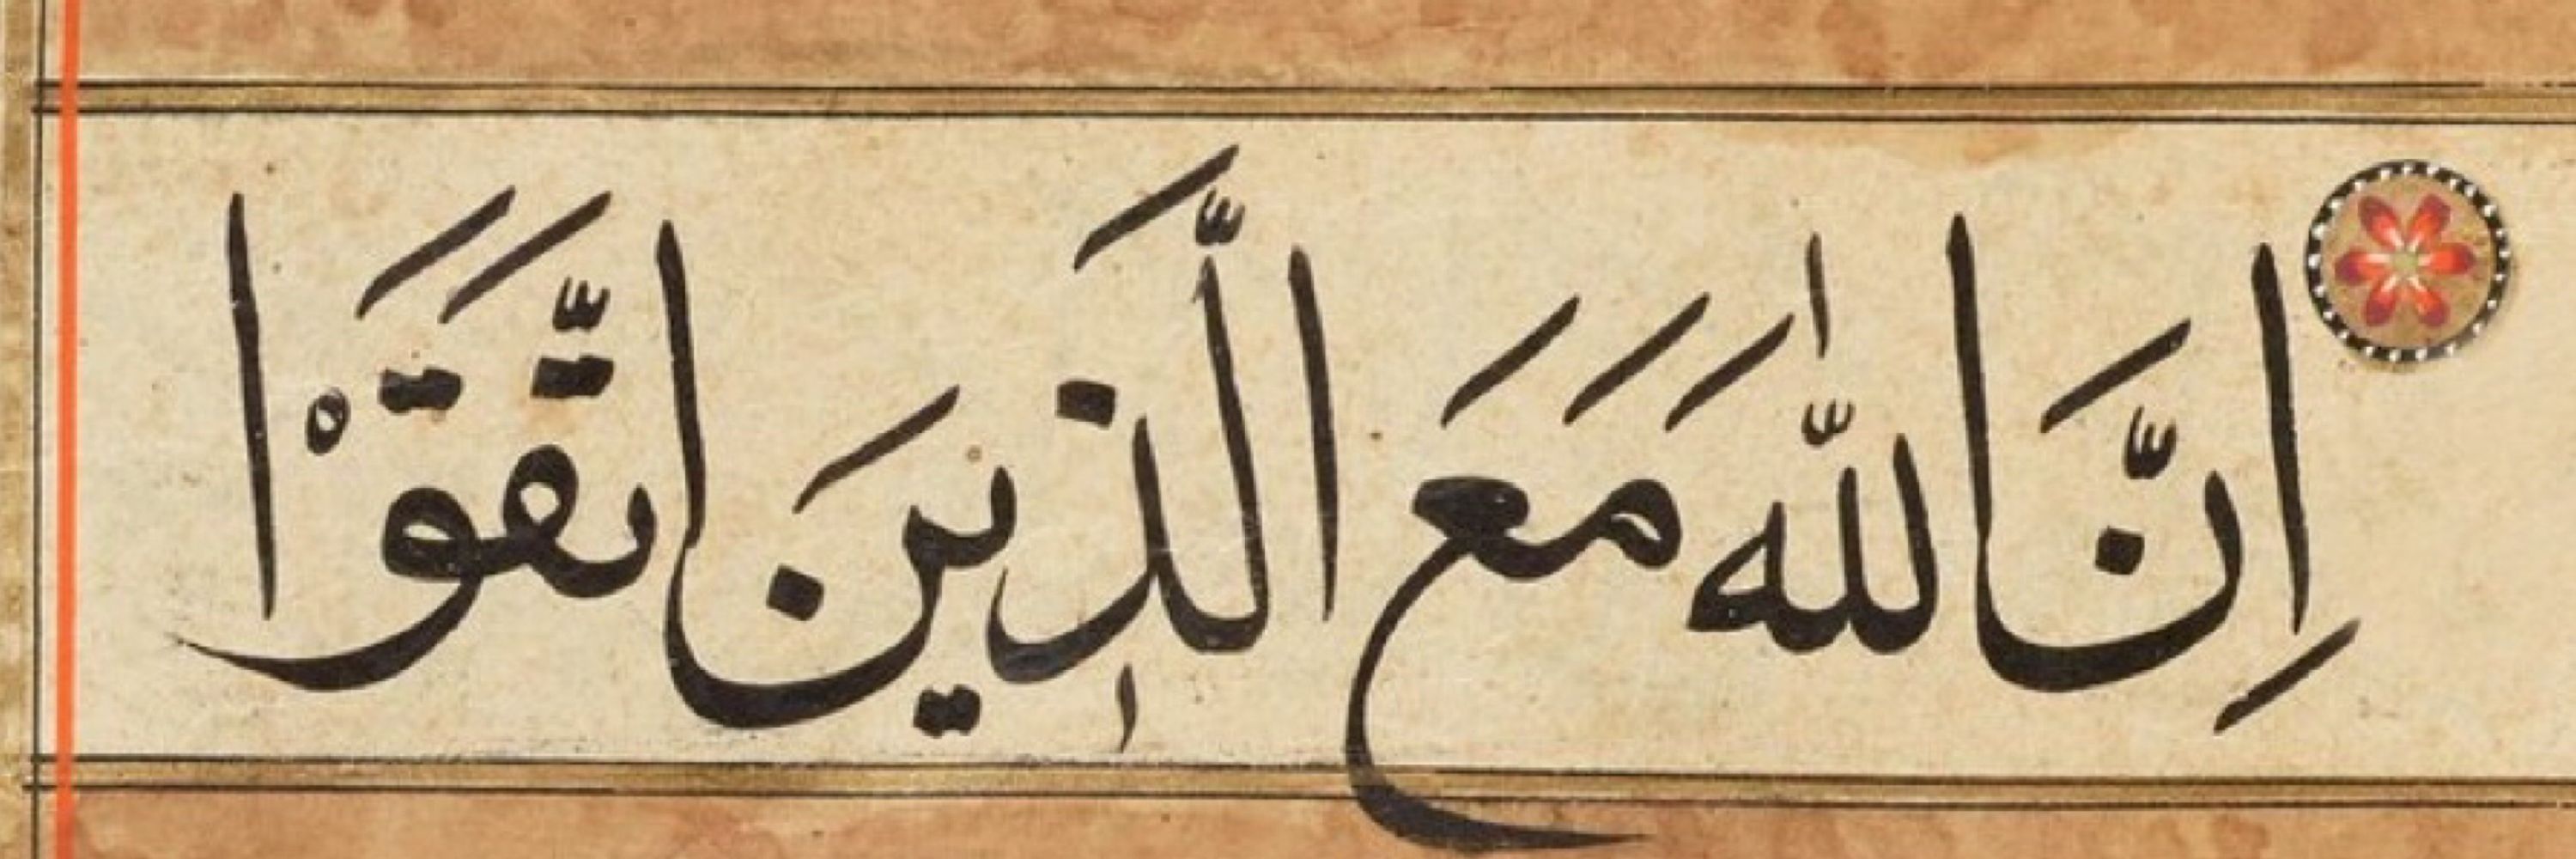 اِنَّ اللّٰهَ مَعَ الَّذٖينَ اتَّقَوْا